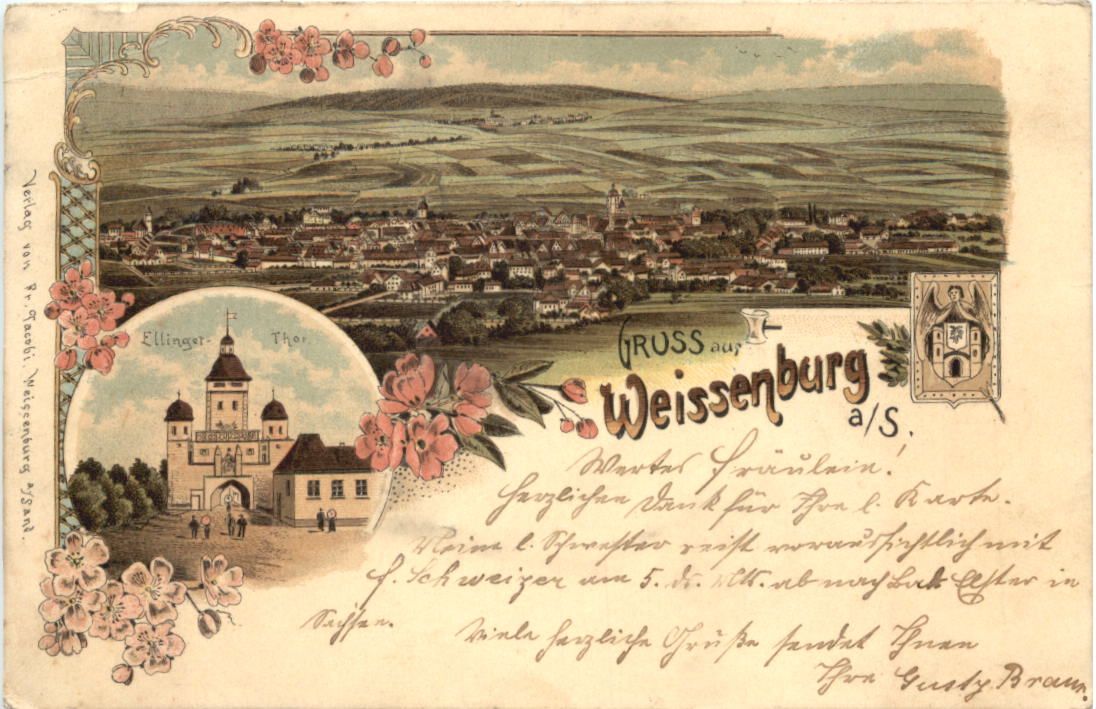 Verlag von Fr. Jacobi, Weissenburg a/Sand.
Ellinger-Thor.
GRUSS aus
Weissenburg
a/S.
Wertes Fräulein!
Herzlichen Dank für Ihre l. Karte.
Meine l. Schwester reist voraussichtlich mit
f. Schweizer am 5. ds. Mts. ab nach Bad Elster in
Sachsen.
Viele herzliche Grüße sendet Ihnen
Ihre Gusty Braun.